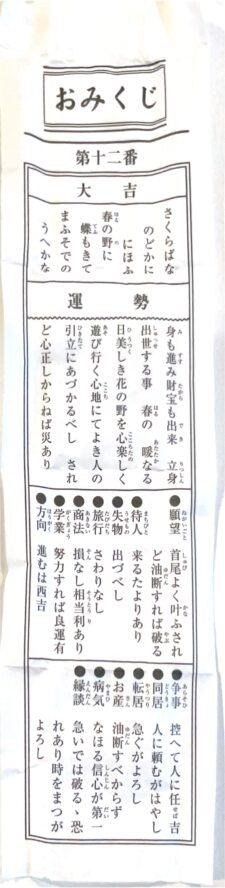 おみくじ
第十二番
大吉
さくらばな
のどかに
にほふ
春の野に
蝶もきて
まふそでの
うへかな
運勢
身も進み財宝も出来 立身
出世する事 春の 暖なる
日美しき花の野を心楽しく
遊び行く心地にてよき人の
引立にあづかるべし され
ど心正しからねば災あり
●願望 首尾よく叶ふされ
ど油断すれば破る
●待人 来るたよりあり
●失物 出づべし
●旅行 さわりなし
●商法 損なし相当利あり
●学業 努力すれば良運有
●方向 進むは西吉
●争事 控へて人に任せ吉
●同居 人に頼むがはやし
●転居 急ぐがよろし
●お産 油断すべからず
●病気 なほる信心が第一
●縁談 急いでは破るゝ恐
れあり時をまつが
よろし